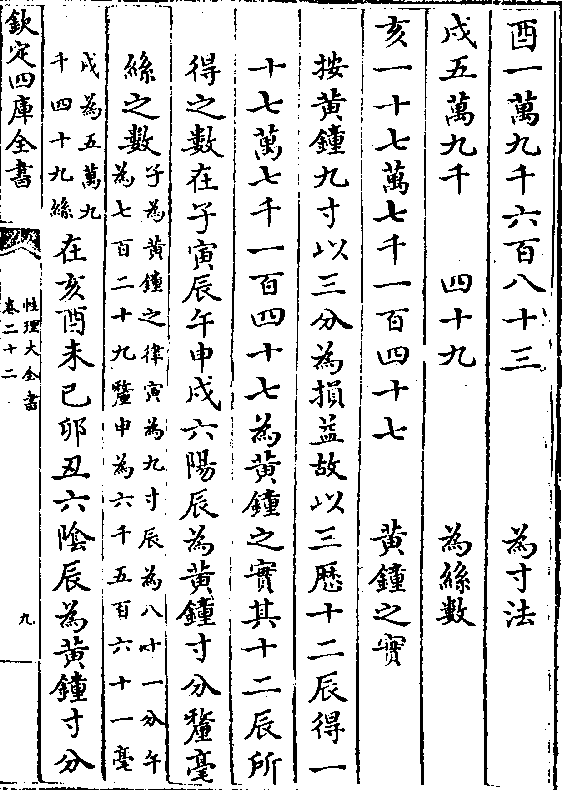 酉一萬九千六百八十三　為寸法
戌五萬九千　四十九　為絲數
亥一十七萬七千一百四十七　黃鐘之實
按黃鐘九寸以三分為損益故以三歷十二辰得一
十七萬七千一百四十七為黃鐘之實其十二辰所
得之數在子寅辰午申戌六陽辰為黃鐘寸分釐毫
絲之數子為黃鐘之律寅為九寸辰為八十一分午
為七百二十九釐申為六千五百六十一毫
戌為五萬九
千四十九絲在亥酉未巳卯丑六陰辰為黃鐘寸分
欽定四庫全書
性理大全書
卷二十二
九